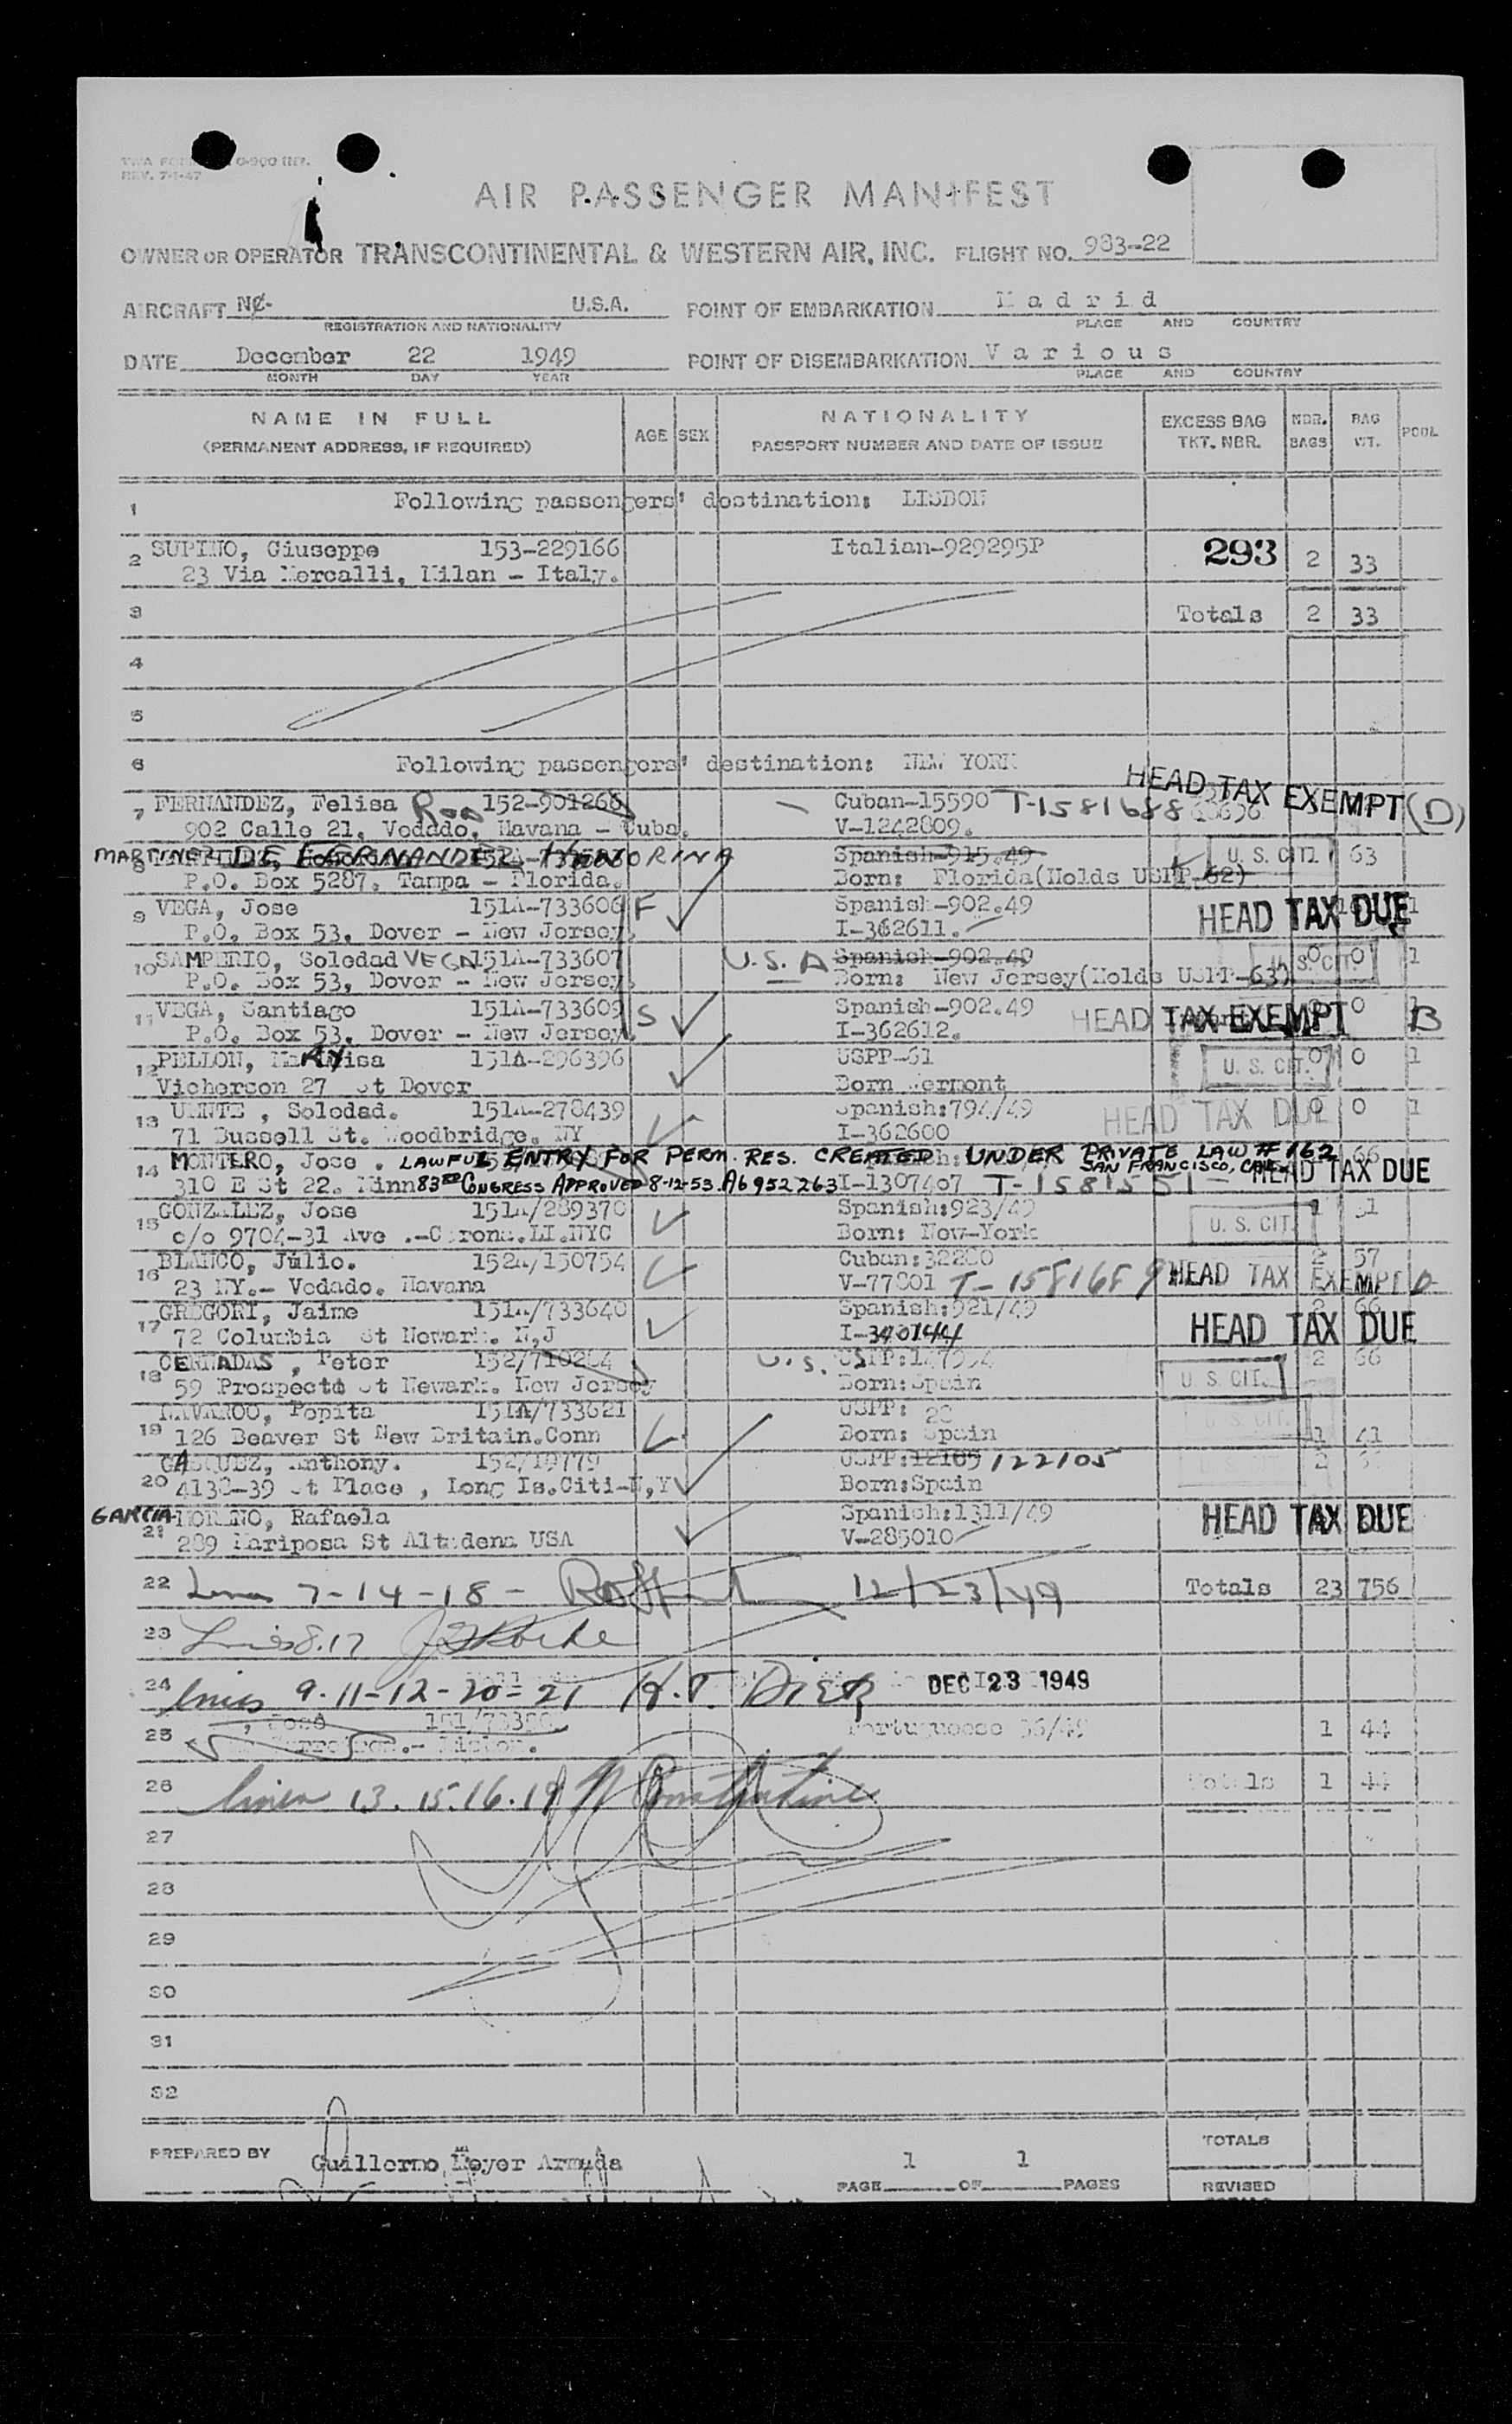 REV. 7-1-47
AIR PASSENGER MANIFEST
OWNER OR OPERATOR TRANSCONTINENTAL & WESTERN AIR, INC. FLIGHT NO. 983-22
AIRCRAFT U.S.A. POINT OF EMBARKATION Madrid
REGISTRATION AND NATIONALITY PLACE AND COUNTRY
DATE December 22 1949 POINT OF DISEMBARKATION Various
MONTH DAY YEAR PLACE AND COUNTRY
NAME IN FULL AGE SEX NATIONALITY EXCESS BAG NBR. BAG POOL
(PERMANENT ADDRESS, IF REQUIRED) PASSPORT NUMBER AND DATE OF ISSUE TKT. NBR. BAGS WT.
1 Following passengers' destination: LISBON
2 SUPINO, Giuseppe 153-229166 Italian-929295P 293 2 33
23 Via Mercalli, Milan - Italy.
3 Totals 2 33
4
5
6 Following passengers' destination: NEW YORK
HEAD TAX EXEMPT (D)
7 FERNANDEZ, Felisa 152-901266 Cuban-15590 T-1581688
902 Calle 21, Vedado, Havana - Cuba. V-1242809.
MARTINEZ DE FERNANDEZ, HONORINA Spanish-915.49 U.S. CIT. 63
8 P.O. Box 5287, Tampa - Florida. Born: Florida(Holds USPP-62)
9 VEGA, Jose 151A-733606 F Spanish-902.49 HEAD TAX DUE 1
P.O. Box 53, Dover - New Jersey. I-362611.
10 SAMPERIO, Soledad VEGA 151A-733607 U.S.A Spanish-902.49 U.S. CIT. 0 0 1
P.O. Box 53, Dover - New Jersey. Born: New Jersey(Holds USPP-63)
11 VEGA, Santiago 151A-733609 S Spanish-902.49 HEAD TAX EXEMPT 0 B
P.O. Box 53, Dover - New Jersey. I-362612.
12 PELLON, 151A-296396 USPP-61 U.S. CIT. 0 0 1
27 St Dover Born Vermont
13 , Soledad. 151A-278439 Spanish:794/49 HEAD TAX DUE 0 0 1
71 Bussell St. Woodbridge. NY I-362600
14 MONTERO, Jose . LAWFUL ENTRY FOR PERM. RES. CREATED UNDER PRIVATE LAW # 162 66
SAN FRANCISCO, CAL.
310 E St 22. Minn 83RD CONGRESS APPROVED 8-12-53. A6952263 I-1307407 T-1581551 HEAD TAX DUE
15 GONZALEZ, Jose 151A/289370 Spanish:923/49 U.S. CIT. 1
c/o 9704-31 Ave .-Corona.LI.NYC Born: New-York
16 BLANCO, Júlio. 152A/150754 Cuban: 2 57
23 NY.- Vedado. Havana V-77801 HEAD TAX EXEMPT D
17 GREGORI, Jaime 151A/733640 Spanish:921/49 2 66
72 Columbia St Newark. N,J HEAD TAX DUE
18 CERNADAS , Peter U.S. 2 66
59 Prospect St Newark. New Jersey Born:Spain U.S. CIT.
19 151A/733621 USPP: U.S. CIT.
126 Beaver St New Britain.Conn Born: Spain 1 41
20 Anthony. USPP: 12105 122105 2
4138-39 St Place , Long Is.Citi-N,Y Born:Spain
21 GARCIA-MORENO, Rafaela Spanish:1311/49 HEAD TAX DUE
289 Mariposa St Altadena USA V-285010
22 Lines 7-14-18 - 12/23/49 Totals 23 756
23 Lines 8.17
24 lines 9-11-12-20-21 H.T. DEC 23 1949
25 José Portuguese 1 44
26 lines 13.15.16.19 Totals 1 44
27
28
29
30
31
32
TOTALS
PREPARED BY Guillermo Meyer Armada
PAGE 1 OF 1 PAGES REVISED